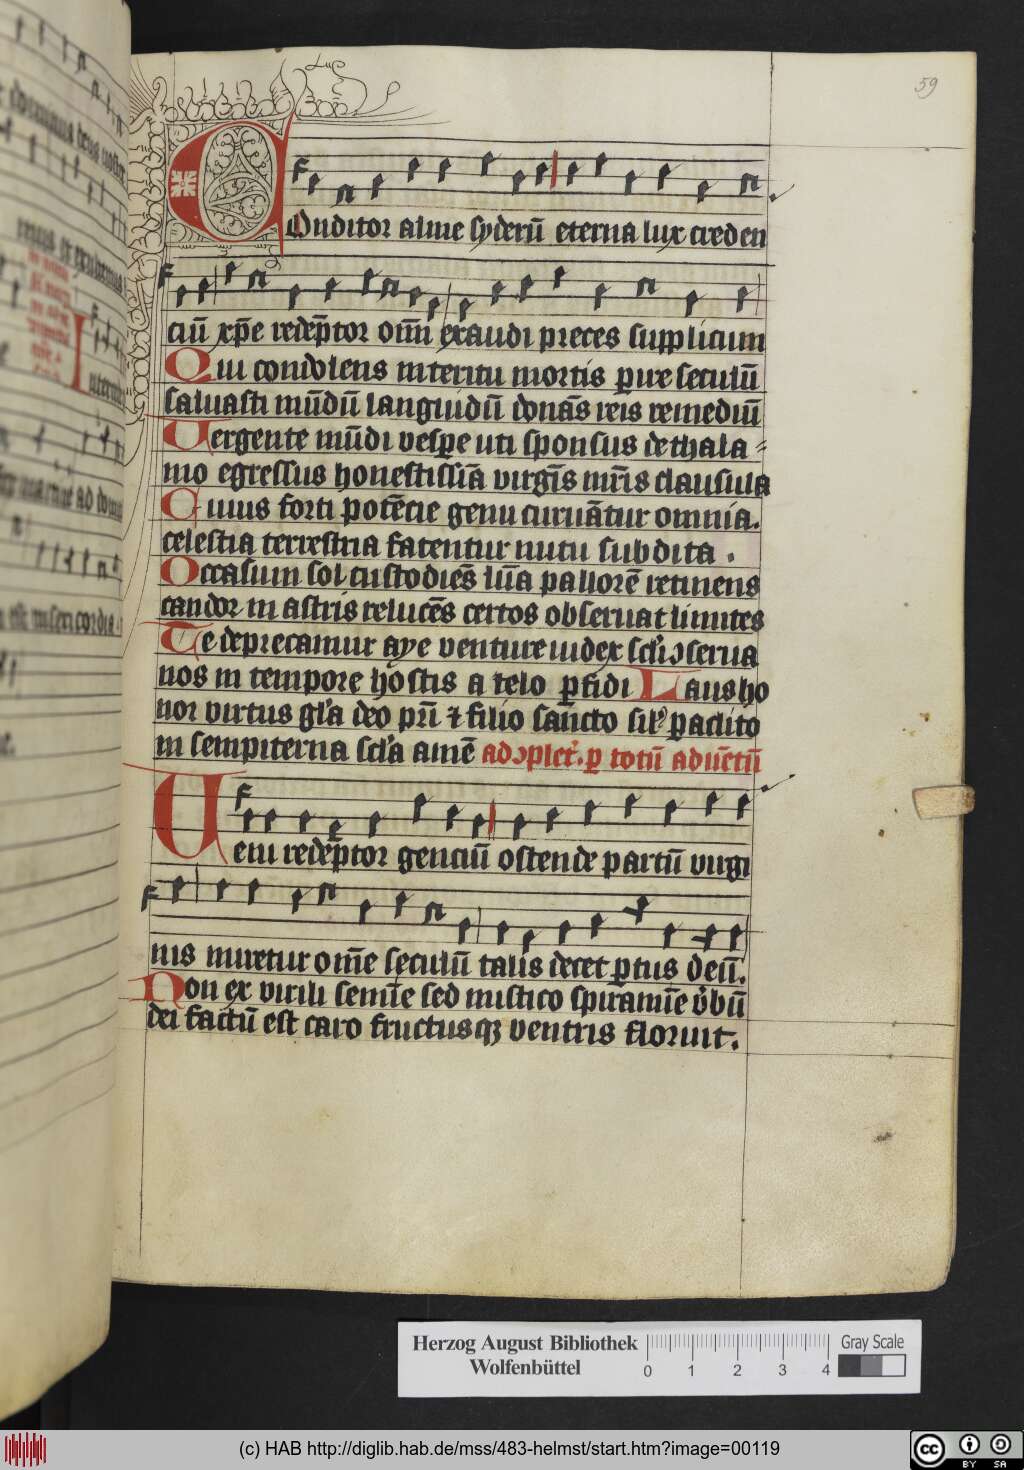 59
Conditor alme syderū eterna lux creden
ciū xp̄e redēptor om̄n exaudi preces supplicum
Qui condolens interitu mortis p̲ire seculū
saluasti mūdū languidū donās reis remediū
Uergente mūdi vesp̲e uti sponsus de thala=
mo egressus honestissīa virgīs mr̄is clausula
Cuius forti potēcie genu curuātur omnia.
celestia terrestria fatentur nutu subdita .
Occasum sol custodiēs lūa pallorē retinens
candor in astris relucēs certos obseruat limites
Te deprecamur aye venture iudex scl'i ↄserua
nos in tempore hostis a telo p̲fidi Laus ho
nor virtus gl'a deo pr̄i ⁊ filio sancto sil' paclito
in sempiterna scl'a amē ad ↄplet'. p̲ totū aduētū
Ueni redēptor genciū ostende partū virgi
nis miretur om̄e seculū talis decet p̲tus deū.
Non ex virili semīe sed mistico spiramīe v̄bū
dei factū est caro fructusqꝫ ventris floruit.
Herzog August Bibliothek
Wolfenbüttel
0 1 2 3 4
Gray Scale
(c) HAB http://diglib.hab.de/mss/483-helmst/start.htm?image=00119
cc BY SA